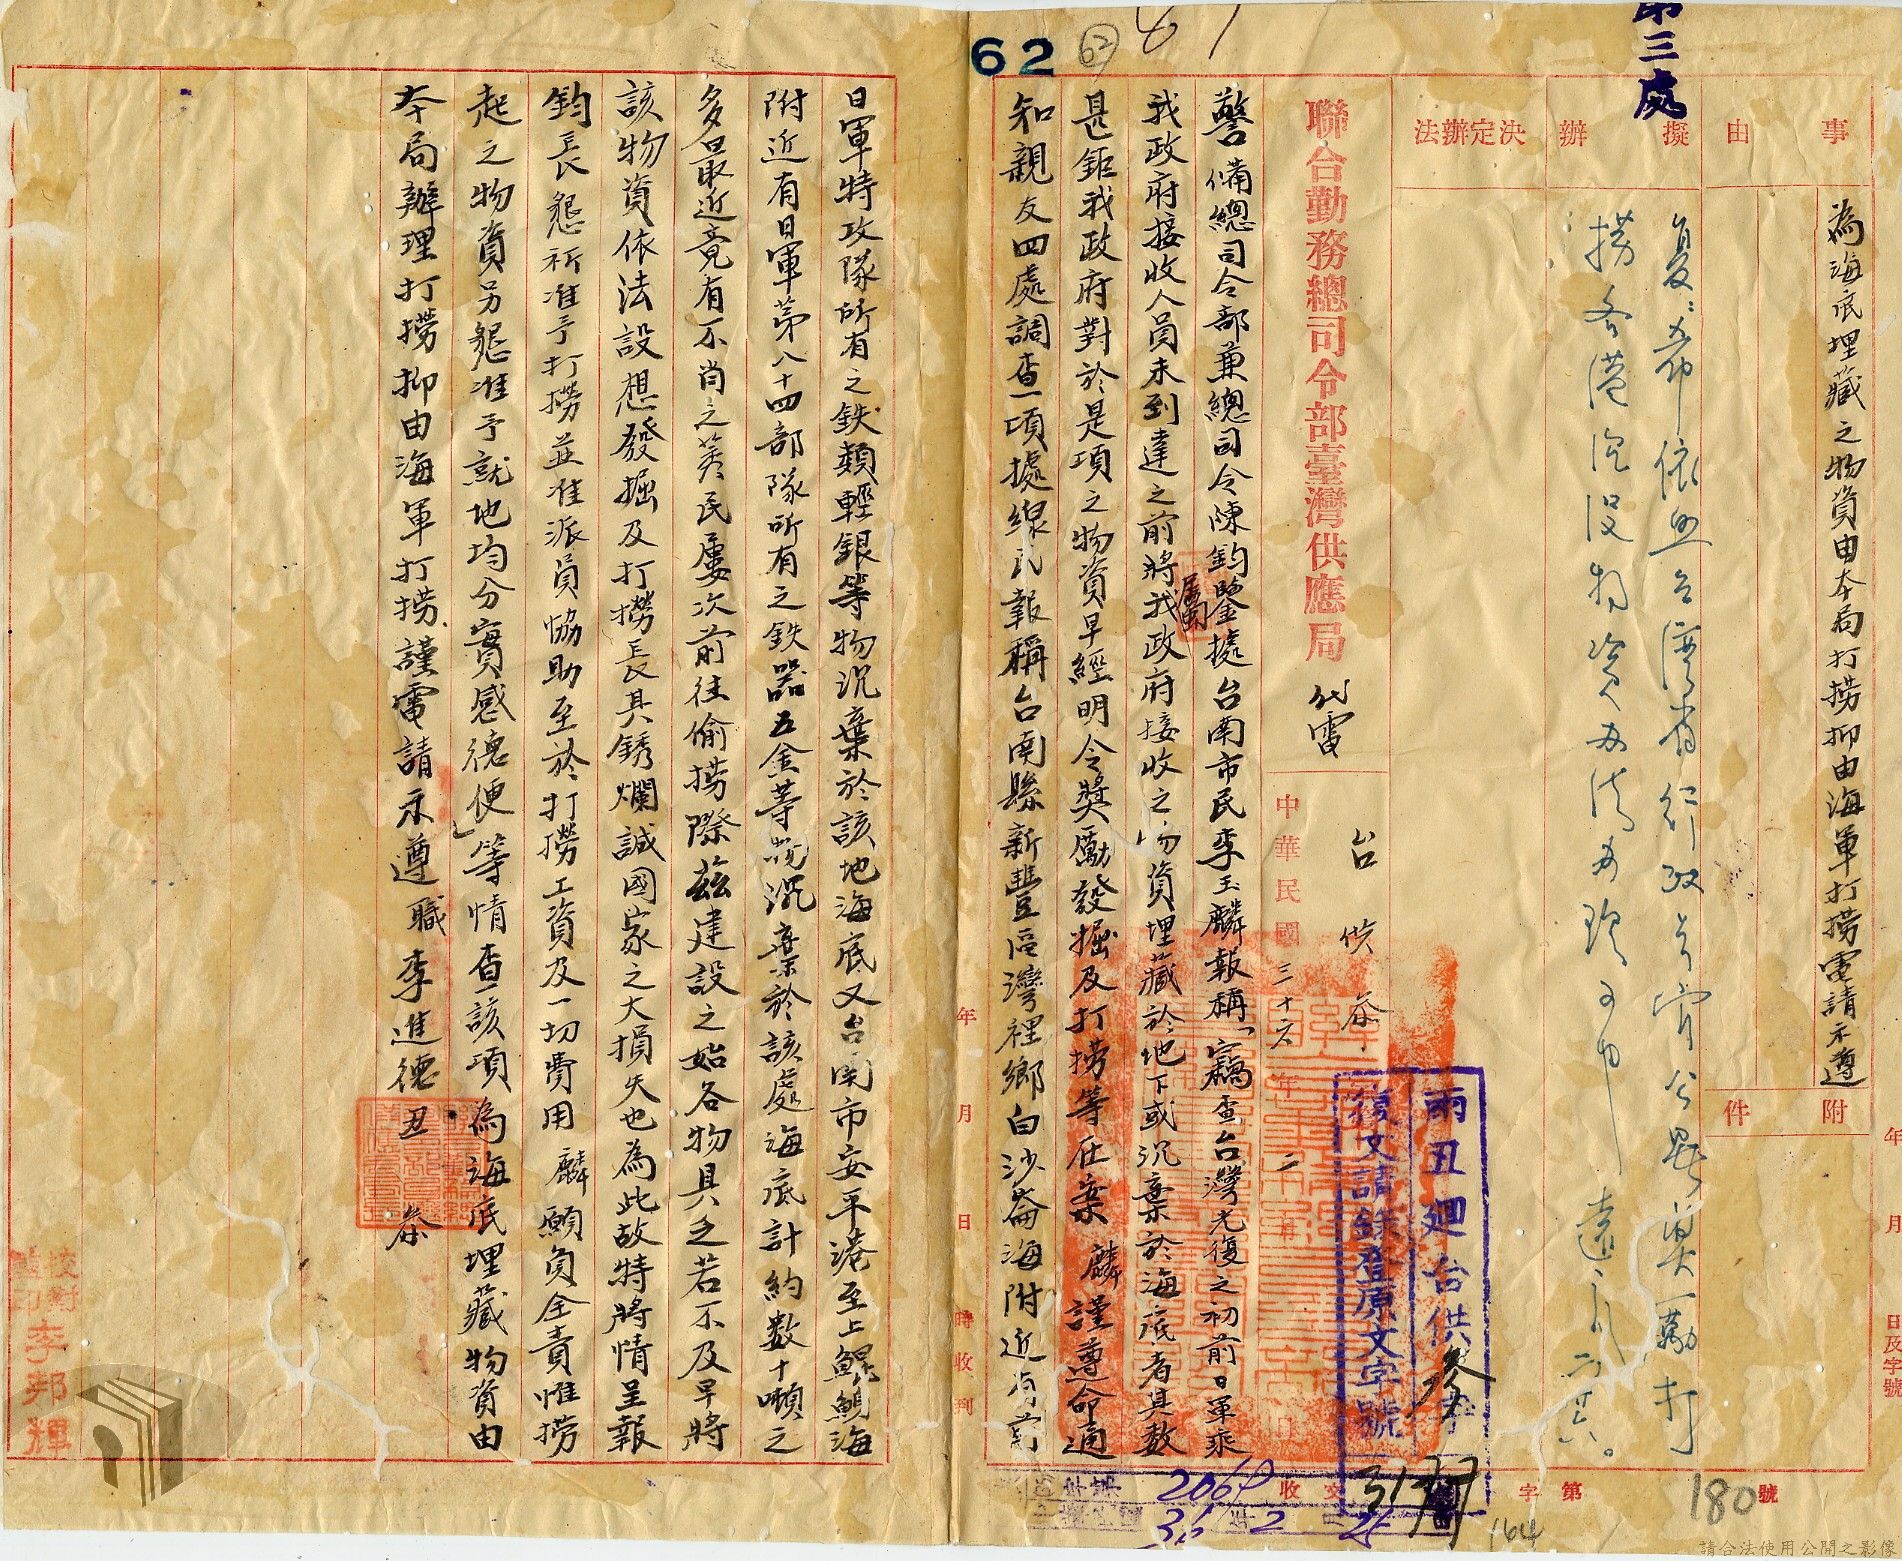 第三處
62
62
事由
擬辦
決定辦法
為海底埋藏之物資由本局打撈抑由海軍打撈電請示遵
附件
年月日及字號
復：希依照台灣省行政長官公署獎勵打
撈各港沉沒物資辦法辦理可也
聯合勤務總司令部臺灣供應局
代電
中華民國三十六年二月日
台供叅
雨丑廻台供叅字
復文請錄登原文字號
警備總司令部兼總司令陳鈞鑒據台南市民李玉麟報稱「竊查台灣光復之初前日軍乘
我政府接收人員未到達之前將我政府應接收之物資埋藏於地下或沉棄於海底者其數
甚鉅我政府對於是項之物資早經明令獎勵發掘及打撈等在案麟謹遵命通
知親友四處調查一項據線民報稱台南縣新豐區灣裡鄉白沙崙海附近有前
年月日時收到
日軍特攻隊所有之鉄類輕銀等物沉棄於該地海底又台南市安平港至上鯤鯓海
附近有日軍第八十四部隊所有之鉄器五金等沉棄於該處海底計約數十噸之
多最近竟有不肖之莠民屢次前往偷撈際茲建設之始各物具乏若不及早將
該物資依法設想發掘及打撈長具銹爛誠國家之大損失也為此故特將情呈報
鈞長懇祈准予打撈並准派員協助至於打撈工資及一切費用麟願負全責惟撈
起之物資另懇准予就地均分實感德便」等情查該項為海底埋藏物資由
本局辦理打撈抑由海軍打撈謹電請示遵職李進德丑叅
校對
監印
李邦輝
收文
字第
號
2069
36
2
180
164
請合法使用公開之影像